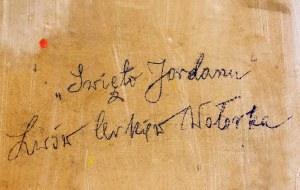 „Święto Jordanu"
Lwów Cerkiew Wołoska